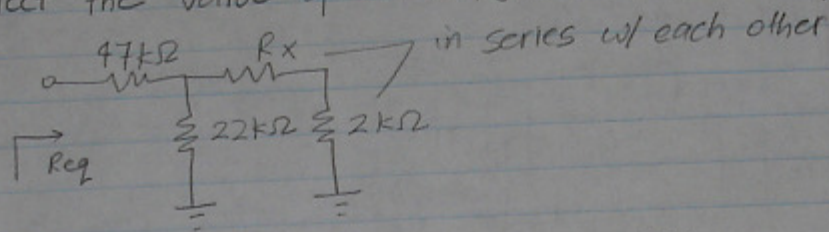 the value
47kΩ
Rx
in series w/ each other
22kΩ
2kΩ
Req